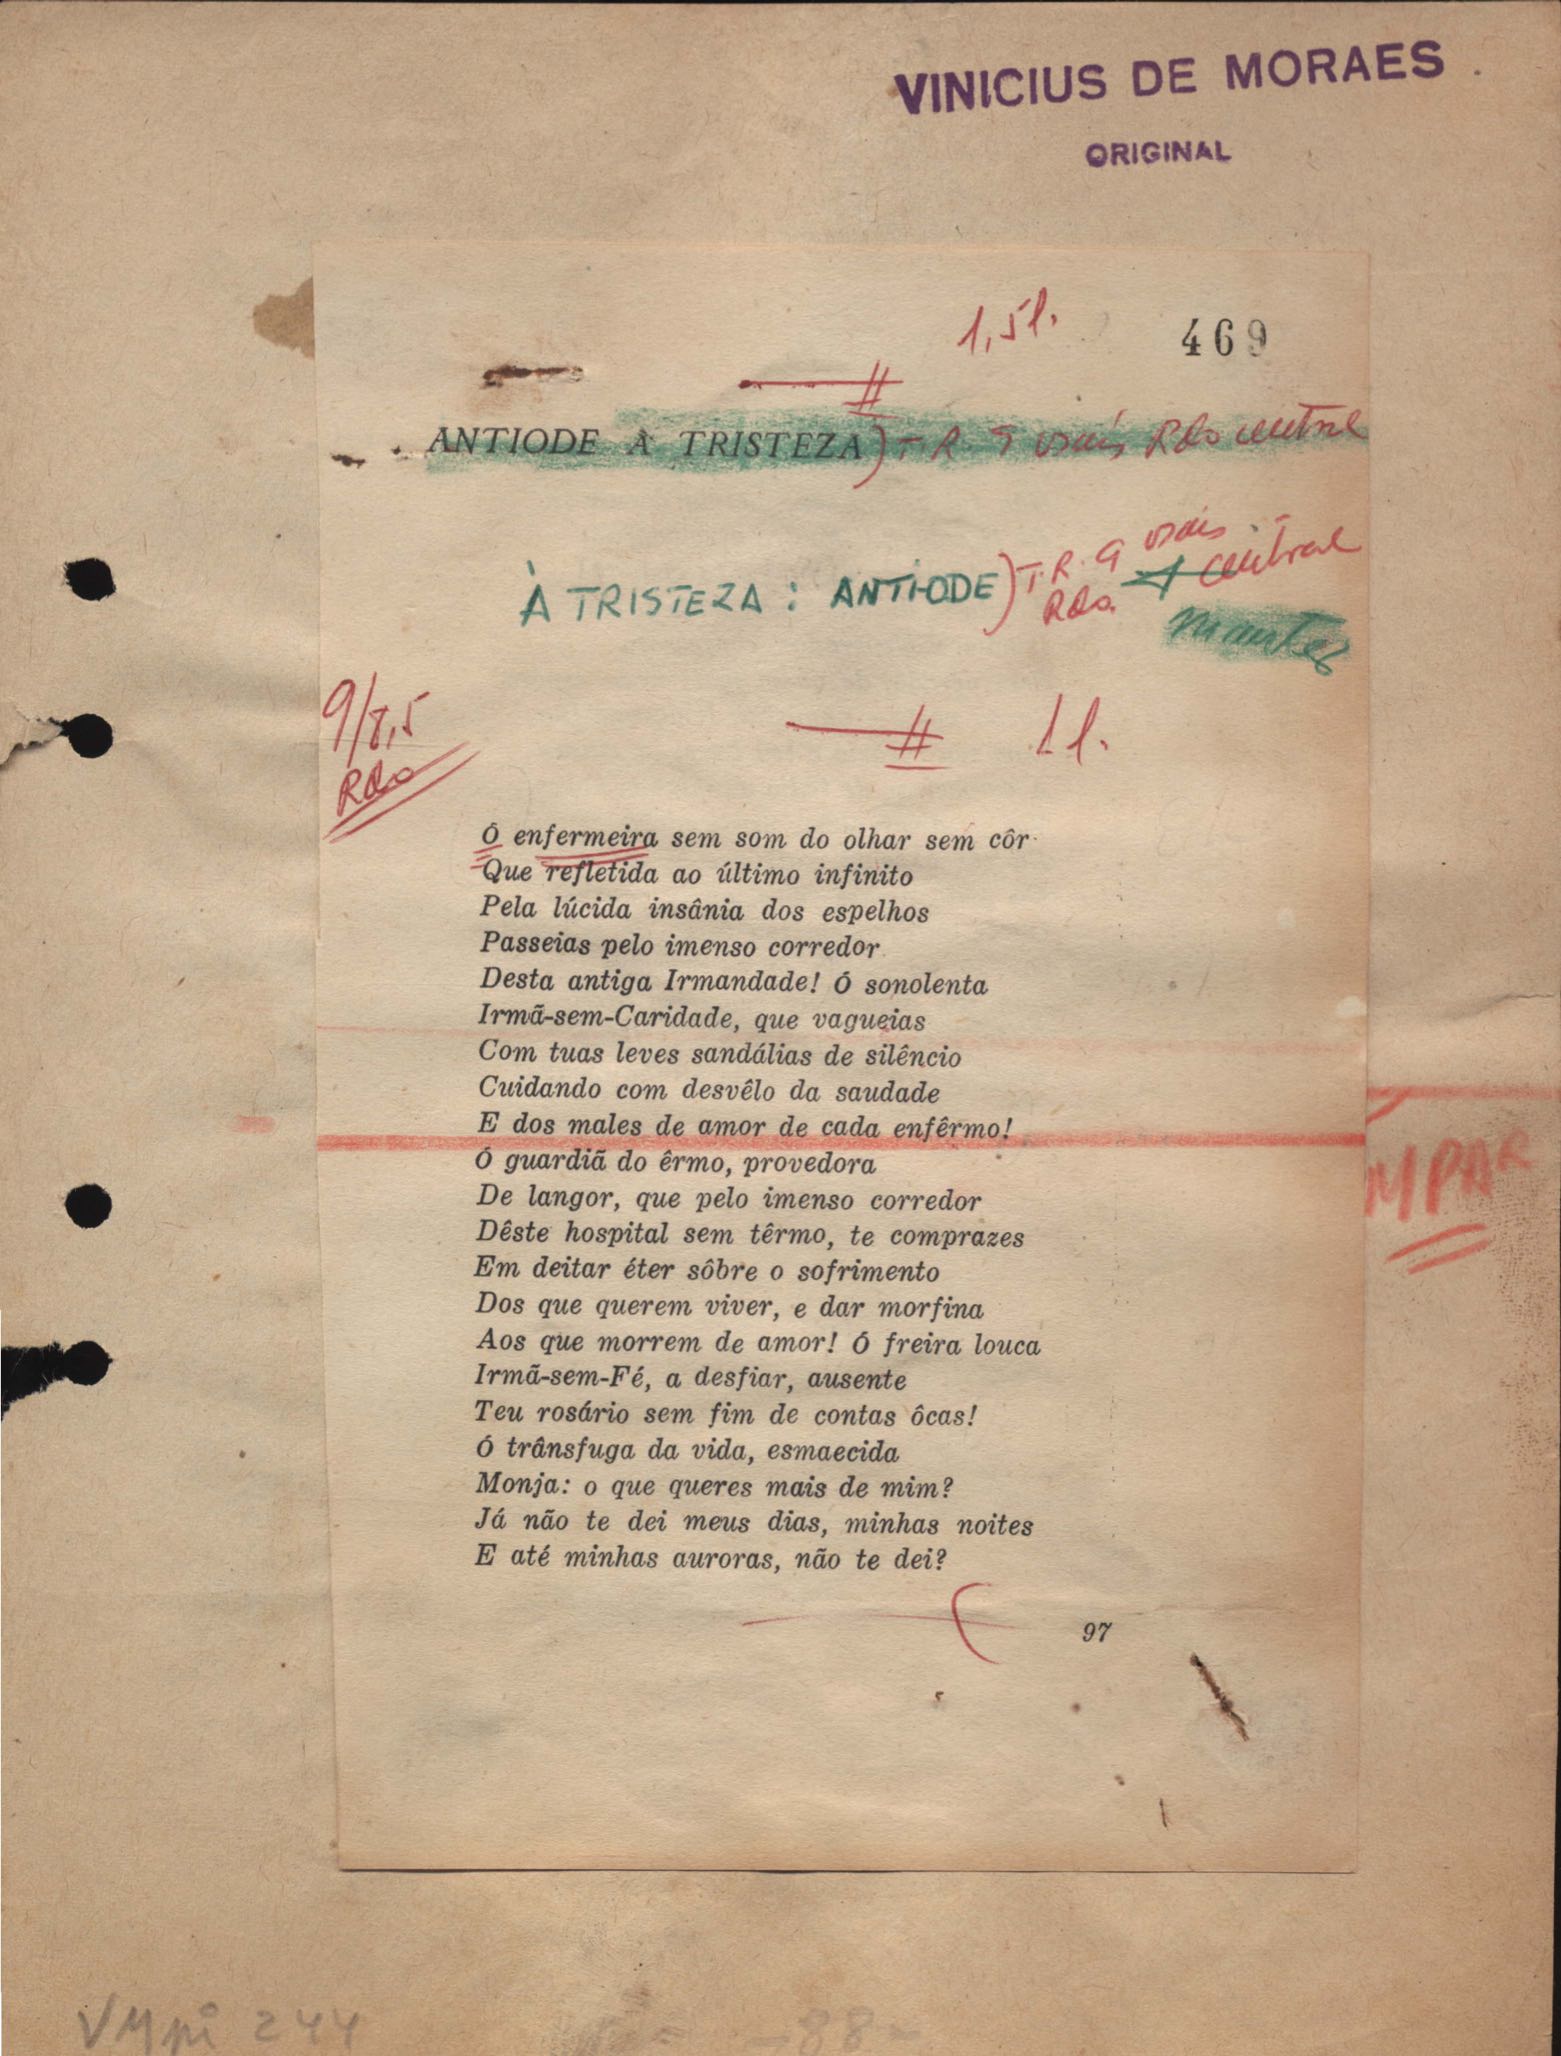 VINICIUS DE MORAES
ORIGINAL
1,5 l.
469
ANTIODE À TRISTEZA) T.R. 9 usais Rdo central
À TRISTEZA: ANTI-ODE) T.R. 9 usais
Rdo. central
manter
9/8,5
Rdo
1 l.
Ó enfermeira sem som do olhar sem côr
Que refletida ao último infinito
Pela lúcida insânia dos espelhos
Passeias pelo imenso corredor
Desta antiga Irmandade! Ó sonolenta
Irmã-sem-Caridade, que vagueias
Com tuas leves sandálias de silêncio
Cuidando com desvêlo da saudade
E dos males de amor de cada enfêrmo!
Ó guardiã do êrmo, provedora
De langor, que pelo imenso corredor
Dêste hospital sem têrmo, te comprazes
Em deitar éter sôbre o sofrimento
Dos que querem viver, e dar morfina
Aos que morrem de amor! Ó freira louca
Irmã-sem-Fé, a desfiar, ausente
Teu rosário sem fim de contas ôcas!
Ó trânsfuga da vida, esmaecida
Monja: o que queres mais de mim?
Já não te dei meus dias, minhas noites
E até minhas auroras, não te dei?
MPAR
97
VMpi 244
-88-